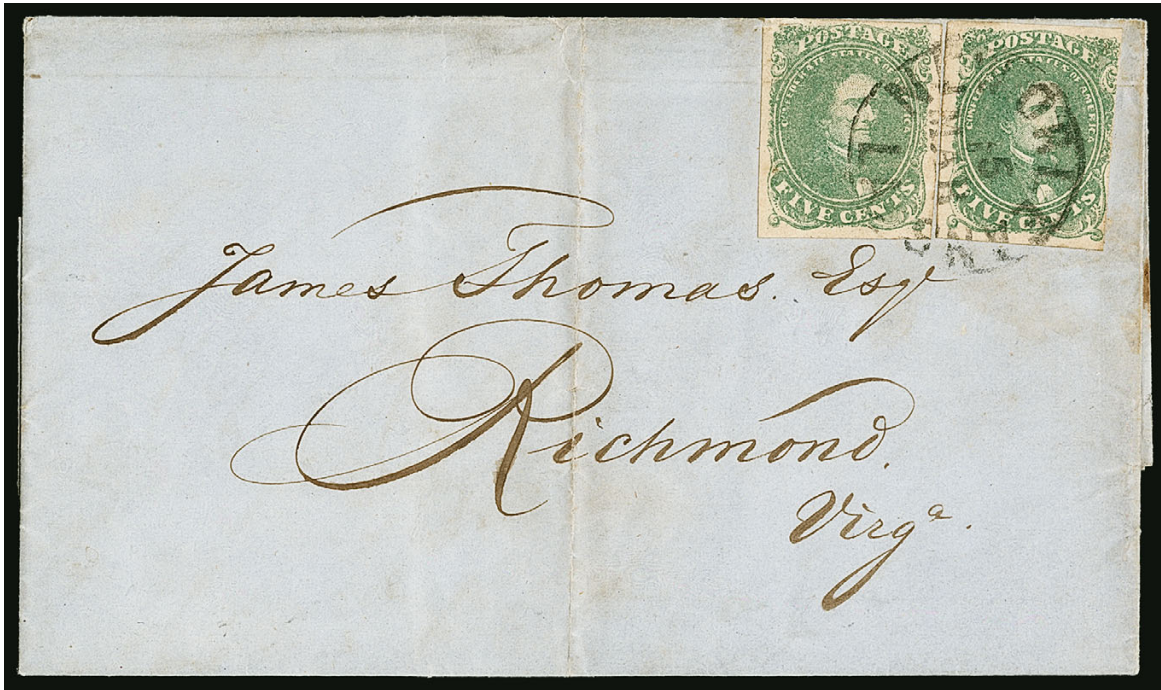 POSTAGE
CONFEDERATE STATES OF AMERICA
FIVE CENTS
POSTAGE
CONFEDERATE STATES OF AMERICA
FIVE CENTS
MAR
15
James Thomas. Esqr
Richmond.
Virga.